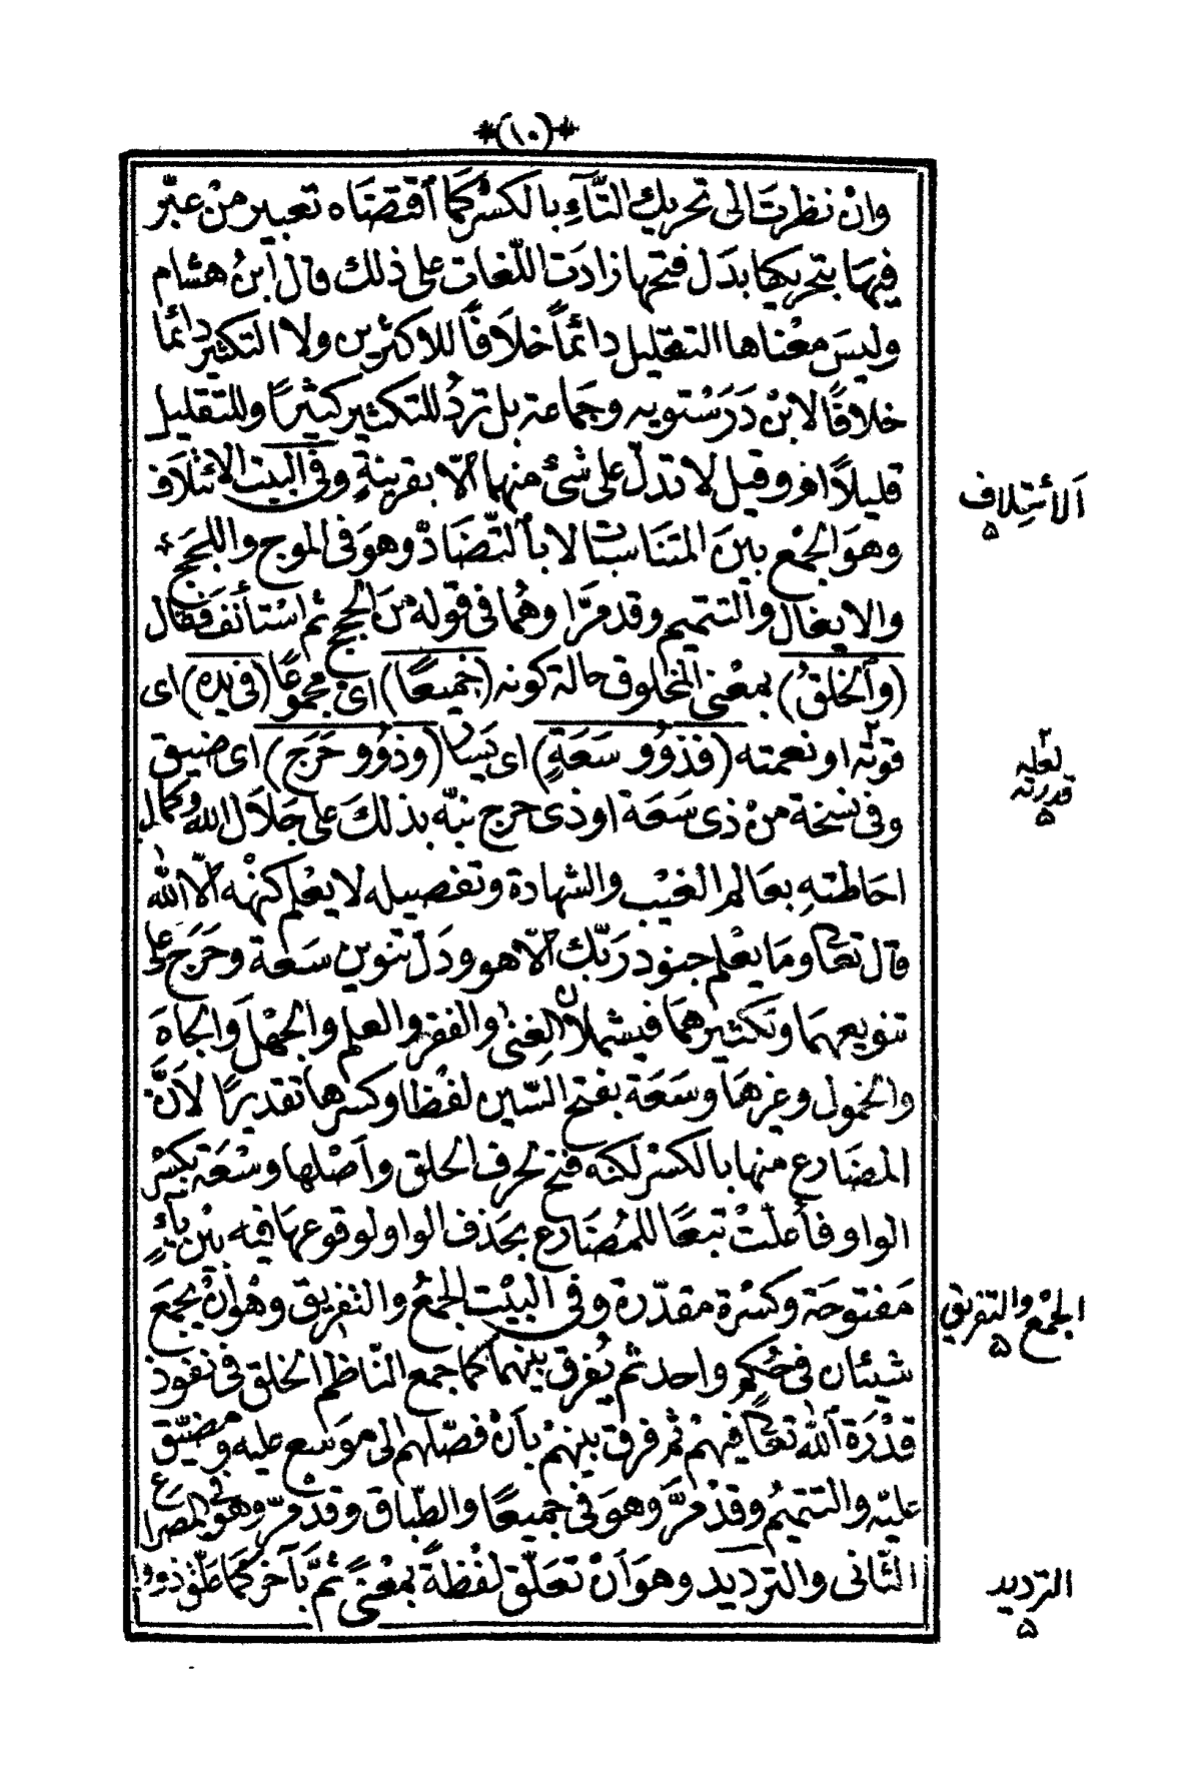 *(١٠)*
وانْ نظرتَ الى تحريك التَّآءِ بالكسْر كمَا اقتضَاه تعبير منْ عبّر
فيهَا بتحريكها بدَل فتحها زادَت اللّغات على ذلك قال ابنُ هشام
وليسَ معْناها التقليل دائمًا خلَافًا للاكثرين ولا التكثير دائمًا
خلافًا لابنْ دَرَسْتويه وجمَاعة بل تردُ للتكثير كثيرًا وللتقليل
قليلًا اﻫ وقيل لا تدلّ على شئ منهما الّا بقرينةٍ وفى البيت الائتلَاف
وهوَ الجمْع بينَ المتنَاسبَات لا بالتّضَادّ وهوَ فى الموج واللجج
والايغال والتتميم وقد مرّا وهُما فى قوله منَ الحجج ثم اسْتأنفَ فقال
(وَالخلقُ) بمعْنى المخلوق حالة كونه (جَميعًا) اىْ مجموعًا (فى يده) اى
قوته٢ او نعمته (فذوُو سَعَةٍ) اى يَسار (وذوُو حَرَج) اى ضيق
وفى نسْخة منْ ذى سَعَة او ذى حرج نبّه بذلكَ على جَلَال الله وكمال
احَاطتهِ بعَالم الغيْب والشهادة وتفصيله لا يعْلم كنْهه الّا الله
قال تعَالى ومَا يعْلم جنود رَبّك الّا هو ودَلّ تنوين سَعة وحَرَج على
تنويعهمَا وتكثيرهمَا فيشملَان الغِنى والفقرَ والعلم والجهْلَ والجَاهَ
والخمول وغيرهَا وسَعَة بفتح السّين لفْظا وكسْرها تقديرًا لأَنَّ
المضَارع منها بالكسْر لكنه فتح لحرف الحلق وأصْلها وسْعَة بكسْر
الواو فأعلّتْ تبعًا للمُضَارع بحَذف الواو لوقوعهَا فيه بيْن يَاءٍ
مَفتوحَة وكسْرة مقدّرة وفى البيْت الجمْعُ والتفريق وهْو أنْ يجمَع
شيئان فى حُكم واحد ثم يُفرق بينهما كما جمع النّاظم الخلق فى نفوذ
قدْرَة الله تعَالى فيهمْ ثم فرق بينهمْ بأنْ فصّلهم الى موَسَع عليه ومضيّق
عليْه والتتميُم وقدْ مرَّ وهوَ فى جميعًا والطّباق وقدْ مرّ وهوَ فى المصراع
الثّانى والترديد وهوَ أنْ تعَلّق لفْظةً بمعْنًى ثمَّ بآخر كمَا علّق ذووا
اَلاْئتِلاف
۵
٢
لعله
قدرته
۵
الجمْع والتفريق
۵
الترديد
۵